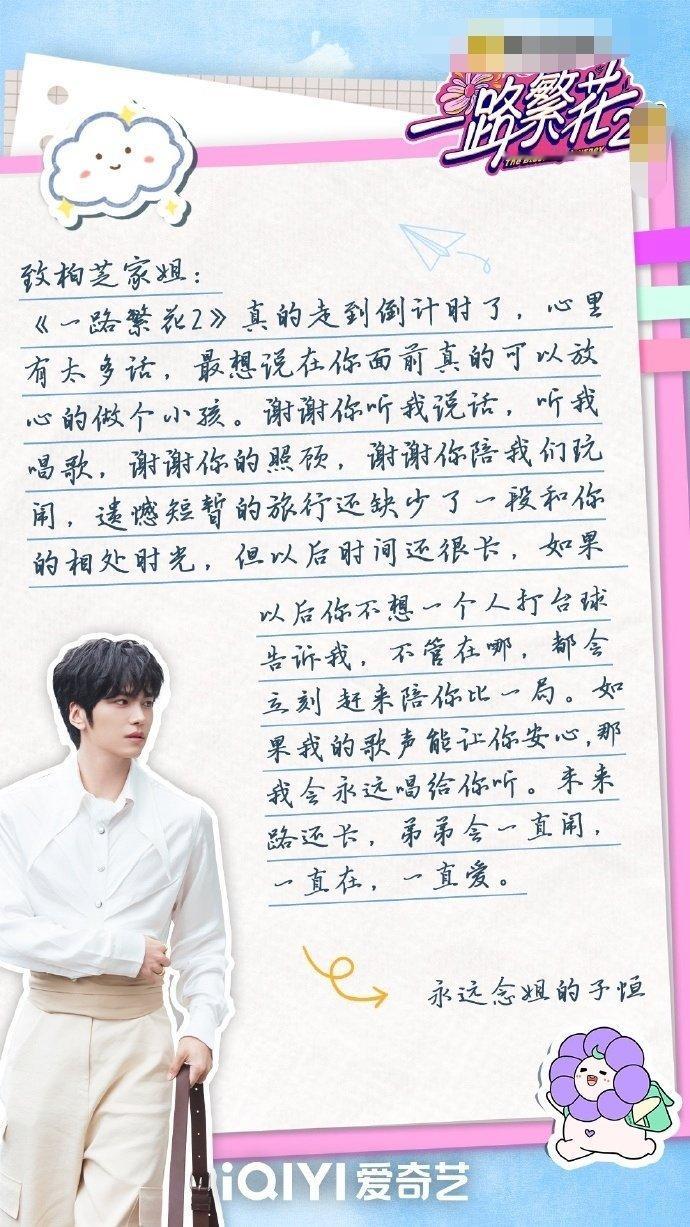 一路繁花2
致柏芝家姐：
《一路繁花2》真的走到倒计时了，心里
有太多话，最想说在你面前真的可以放
心的做个小孩。谢谢你听我说话，听我
唱歌，谢谢你的照顾，谢谢你陪我们玩
闹，遗憾短暂的旅行还缺少了一段和你
的相处时光，但以后时间还很长，如果
以后你不想一个人打台球
告诉我，不管在哪，都会
立刻赶来陪你比一局。如
果我的歌声能让你安心，那
我会永远唱给你听。未来
路还长，弟弟会一直闹，
一直在，一直爱。
永远念姐的子恒
iQIYI 爱奇艺